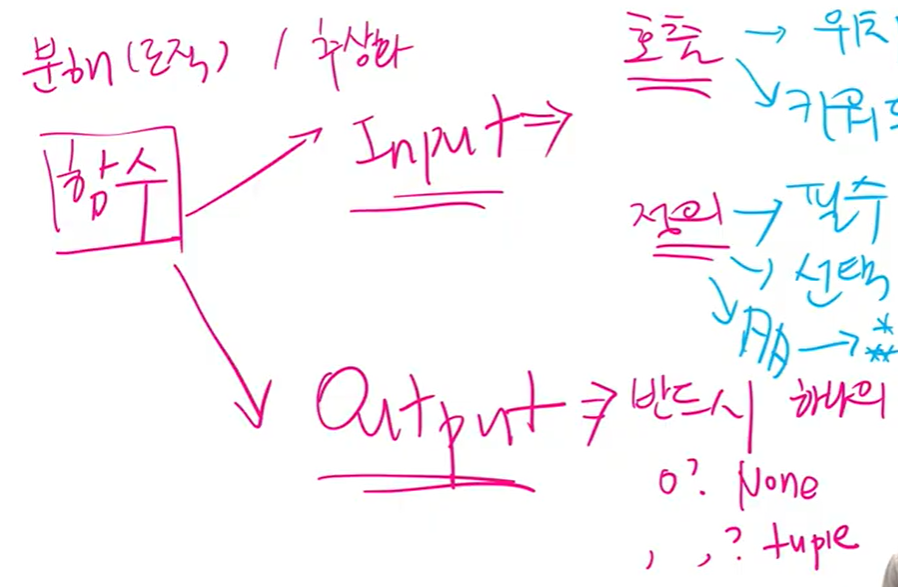 분해(로직) / 추상화
함수
Input ⇒
호출 →
정의 → 필수
→ 선택
→ *
**
Output ⇒ 반드시 하나의
0? None
, , ? tuple